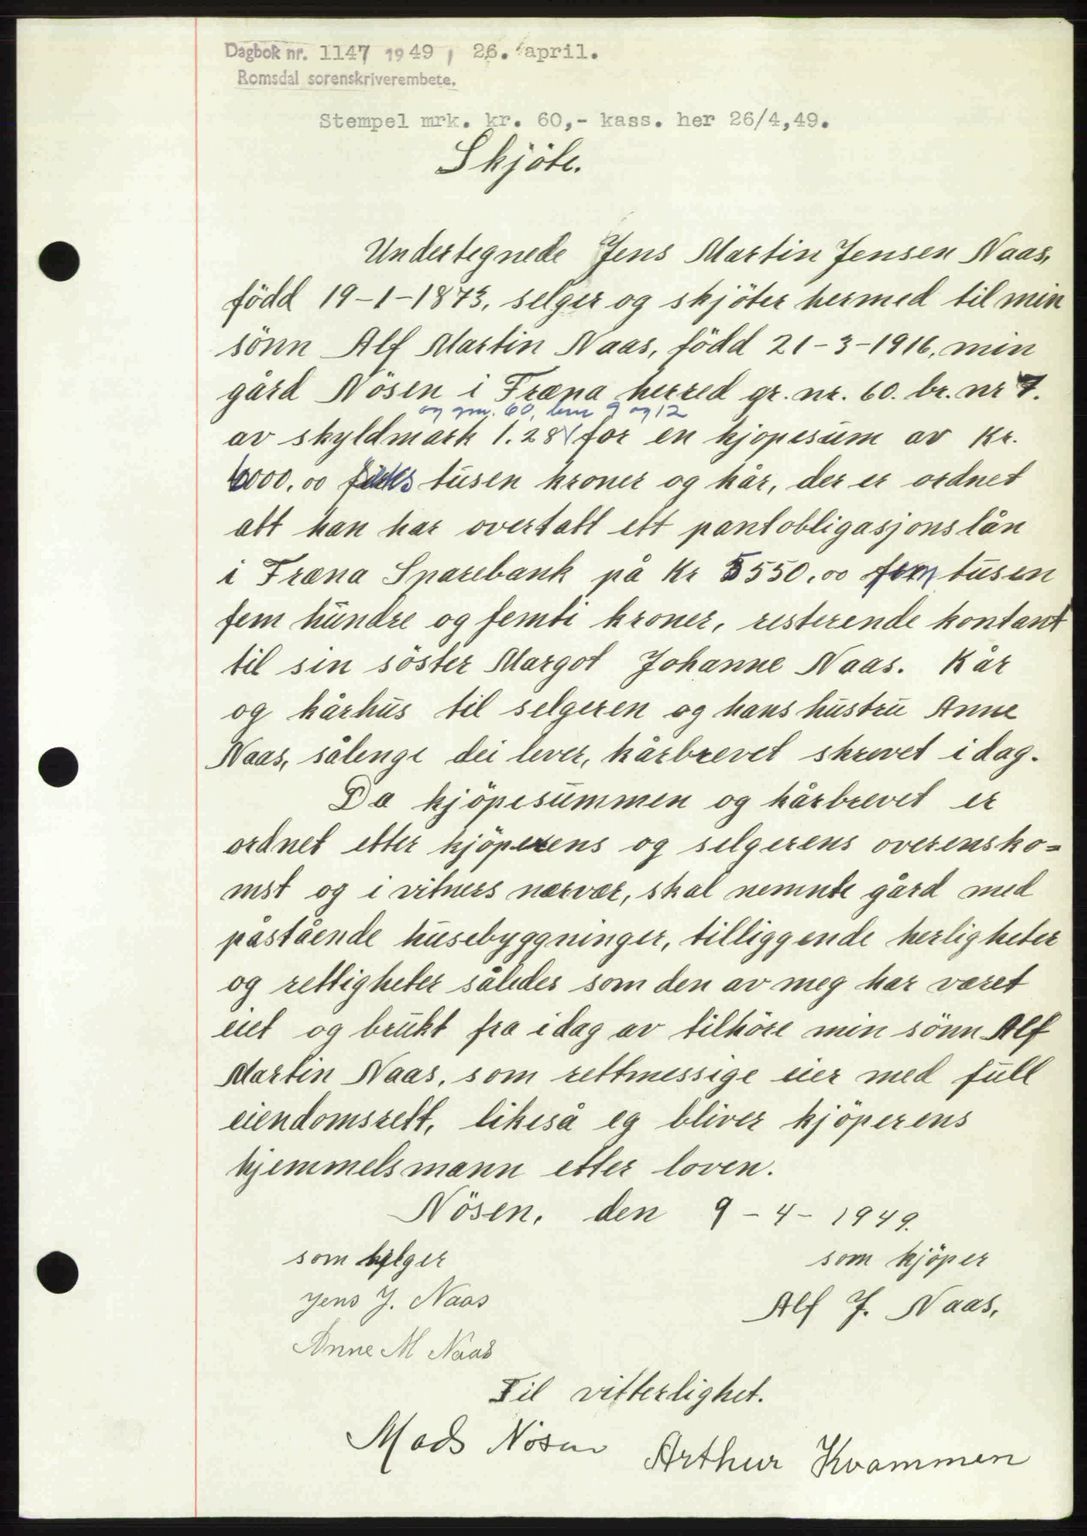 Dagbok nr. 1147 1949, 26. april.
Romsdal sorenskriverembete.
Stempel mrk. kr. 60,- kass. her 26/4,49.
Skjöte.
Undertegnede Jens Martin Jensen Naas,
född 19-1-1873, selger og skjöter hermed til min
sönn Alf Martin Naas, född 21-3-1916, min
gård Nösen i Fræna herred gr. nr. 60. br. nr 7.
og gnr. 60, bnr 9 og 12
av skyldmark 1.28 for en kjöpesum av Kr.
6000,00 seks tusen kroner og kår, der er ordnet
att han har overtatt ett pantobligasjonslån
i Fræna Sparebank på Kr 5550,00 fem tusen
fem hundre og femti kroner, resterende kontant
til sin söster Margot Johanne Naas. Kår
og kårhus til selgeren og hans hustru Anne
Naas, sålenge dei lever, kårbrevet skrevet i dag.
Da kjöpesummen og kårbrevet er
ordnet etter kjöperens og selgerens overensko=
mst og i vitners nærvær, skal nemnte gård med
påstående husebyggninger, tilliggende herligheter
og rettigheter således som den av meg har været
eiet og brukt fra i dag av tilhöre min sönn Alf
Martin Naas, som rettmessige eier med full
eiendomsrett, likeså eg bliver kjöperens
hjemmelsmann etter loven.
Nösen, den 9-4-1949.
som selger som kjöper
Jens J. Naas Alf J. Naas,
Anne M Naas
Til vitterlighet.
Mads Nösen Arthur Kvammen